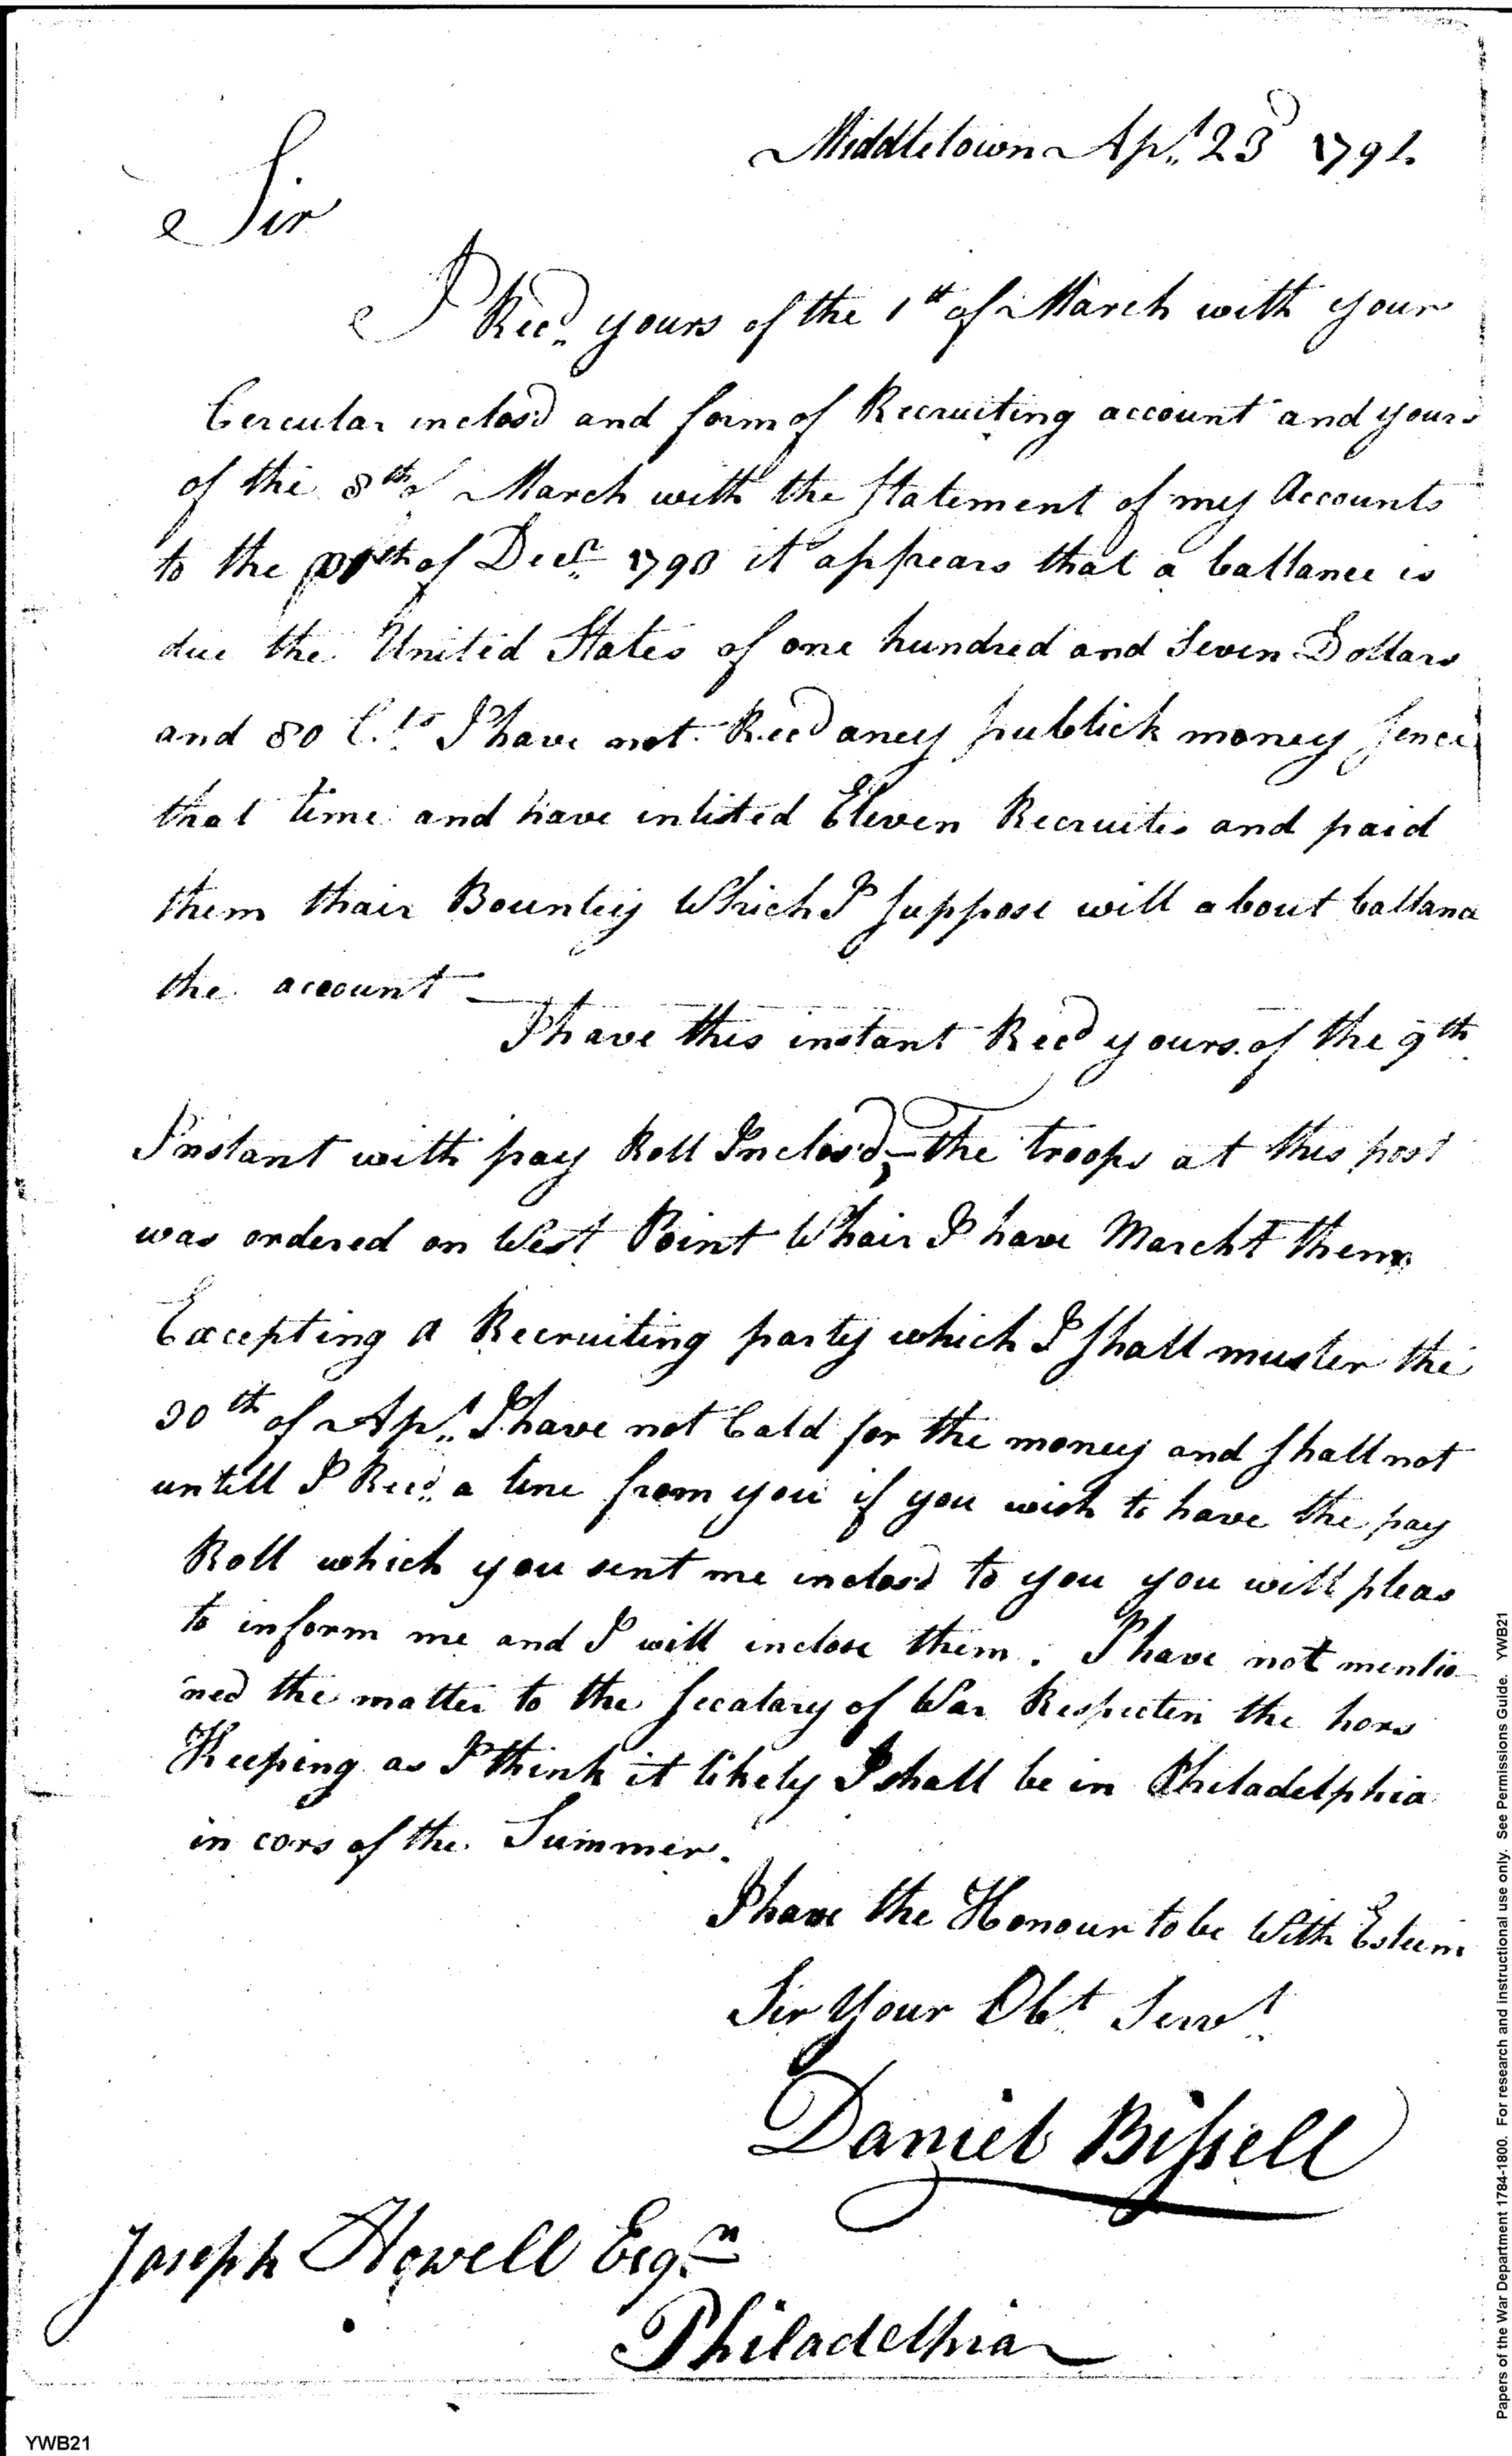 Middletown Apl. 23d 1791.
Sir
I Recd. yours of the 1st of March with your
Cercular inclosd and form of Recruiting account and yours
of the 8th of March with the Statement of my Accounts
to the of Decr. 1790 it appears that a ballance is
due the United States of one hundred and Seven Dollars
and 80 Cts. I have not Recd aney publick money Sence
that time and have inlisted Eleven Recruits and paid
them thair Bountey Which I Suppose will about ballance
the account —
I have this instant Recd yours of the 9th
Instant with pay Roll Inclos'd, — The troops at this post
was ordered on West Point Whair I have Marcht them
Excepting a Recruiting party which I Shall muster the
30th of Apl. I have not Cald for the money and Shall not
untill I Recd. a line from you if you wish to have the pay
Roll which you sent me inclosd to you you will pleas
to inform me and I will inclose them. I have not mentio-
ned the matter to the Secatary of War Respecten the hors
Keeping as I think it likely I shall be in Philadelphia
in cors of the Summer.
I have the Honour to be With Esteem
Sir Your Obt Servt.
Daniel Bissell
Joseph Howell Esqr.
Philadelhia
YWB21
Papers of the War Department 1784-1800. For research and instructional use only. See Permissions Guide. YWB21